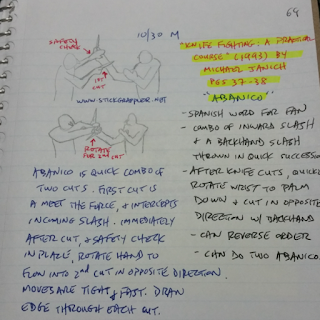 10/30 M
64
SAFETY
CHECK
1ST
CUT
WWW.STICKGRAPPLER.NET
ROTATE
FOR 2ND CUT
ABANICO IS QUICK COMBO OF
TWO CUTS. FIRST CUT IS
A MEET THE FORCE, & INTERCEPTS
INCOMING SLASH. IMMEDIATELY
AFTER CUT, & SAFETY CHECK
IN PLACE, ROTATE HAND TO
FLOW INTO 2ND CUT IN OPPOSITE DIRECTION.
MOVES ARE TIGHT & FAST. DRAW
EDGE THROUGH EACH CUT.
"KNIFE FIGHTING: A PRACTICAL
COURSE" (1993) BY
MICHAEL JANICH
PGS 37-38
"ABANICO"
- SPANISH WORD FOR FAN
- COMBO OF INWARD SLASH
& A BACKHAND SLASH
THROWN IN QUICK SUCCESSION
- AFTER KNIFE CUTS, QUICKLY
ROTATE WRIST TO PALM
DOWN & CUT IN OPPOSITE
DIRECTION W/ BACKHAND
- CAN REVERSE ORDER
- CAN DO TWO ABANICO